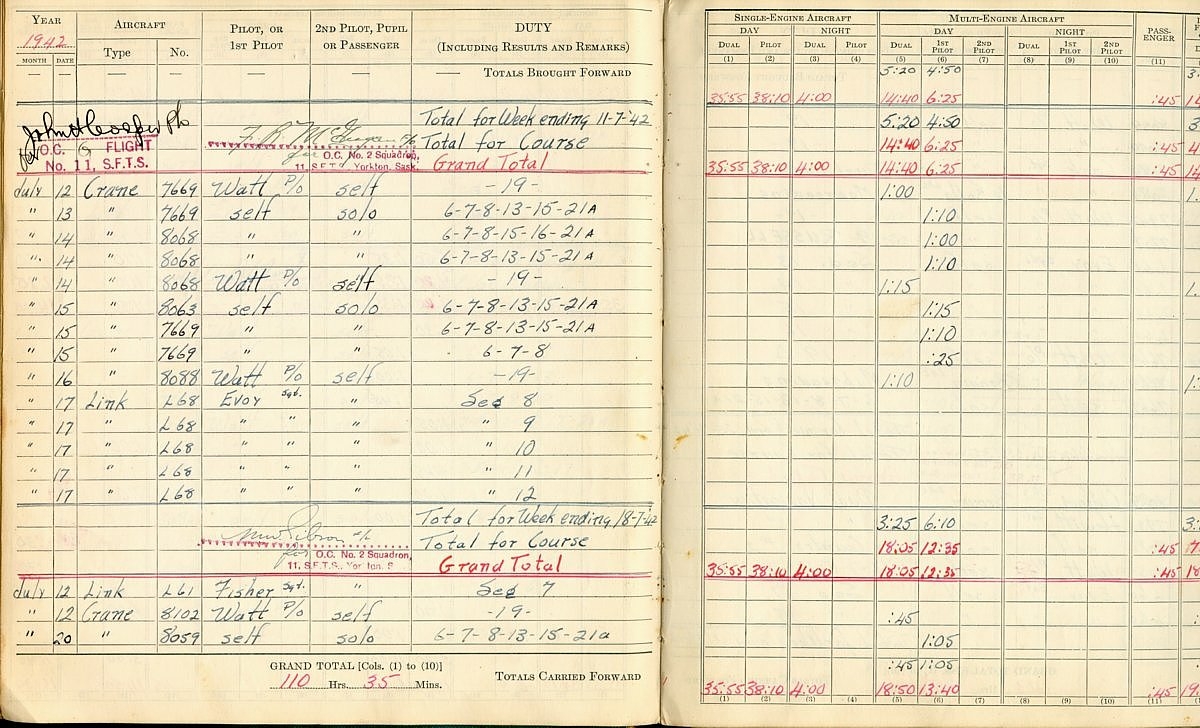 YEAR AIRCRAFT PILOT, OR 1ST PILOT 2ND PILOT, PUPIL OR PASSENGER DUTY (INCLUDING RESULTS AND REMARKS) SINGLE-ENGINE AIRCRAFT MULTI-ENGINE AIRCRAFT PASSENGER
1942 Type No. DAY NIGHT DAY NIGHT
MONTH DATE DUAL PILOT DUAL PILOT DUAL 1ST PILOT 2ND PILOT DUAL 1ST PILOT 2ND PILOT
(1) (2) (3) (4) (5) (6) (7) (8) (9) (10) (11)
— — — — — — — TOTALS BROUGHT FORWARD 5:20 4:50
35:55 38:10 4:00 14:40 6:25 :45
Total for Week ending 11-7-'42 5:20 4:50
O.C. G FLIGHT Total for Course 14:40 6:25 :45
No. 11, S.F.T.S. for O.C. No. 2 Squadron, 11, S.F.T.S. Yorkton, Sask. Grand Total 35:55 38:10 4:00 14:40 6:25 :45
July 12 Crane 7669 Watt P/o self -19- 1:00
" 13 " 7669 self solo 6-7-8-13-15-21A 1:10
" 14 " 8068 " " 6-7-8-15-16-21A 1:00
" 14 " 8068 " " 6-7-8-13-15-21A 1:10
" 14 " 8068 Watt P/o self -19- 1:15
" 15 " 8063 self solo 6-7-8-13-15-21A 1:15
" 15 " 7669 " " 6-7-8-13-15-21A 1:10
" 15 " 7669 " " 6-7-8 :25
" 16 " 8088 Watt P/o self -19- 1:10
" 17 Link L68 Evoy Sgt. " Seq 8
" 17 " L68 " " " " 9
" 17 " L68 " " " " 10
" 17 " L68 " " " " 11
" 17 " L68 " " " " 12
Total for Week ending 18-7-'42 3:25 6:10
for O.C. No. 2 Squadron, Total for Course 18:05 12:35 :45
11, S.F.T.S. Grand Total 35:55 38:10 4:00 18:05 12:35 :45
July 12 Link L61 Fisher Sgt. " Seq 7
" 12 Crane 8102 Watt P/o self -19- :45
" 20 " 8059 self solo 6-7-8-13-15-21a 1:05
GRAND TOTAL [Cols. (1) to (10)] TOTALS CARRIED FORWARD :45 1:05
110 Hrs. 35 Mins. 35:55 38:10 4:00 18:50 13:40 :45
(1) (2) (3) (4) (5) (6) (7) (8) (9) (10) (11)